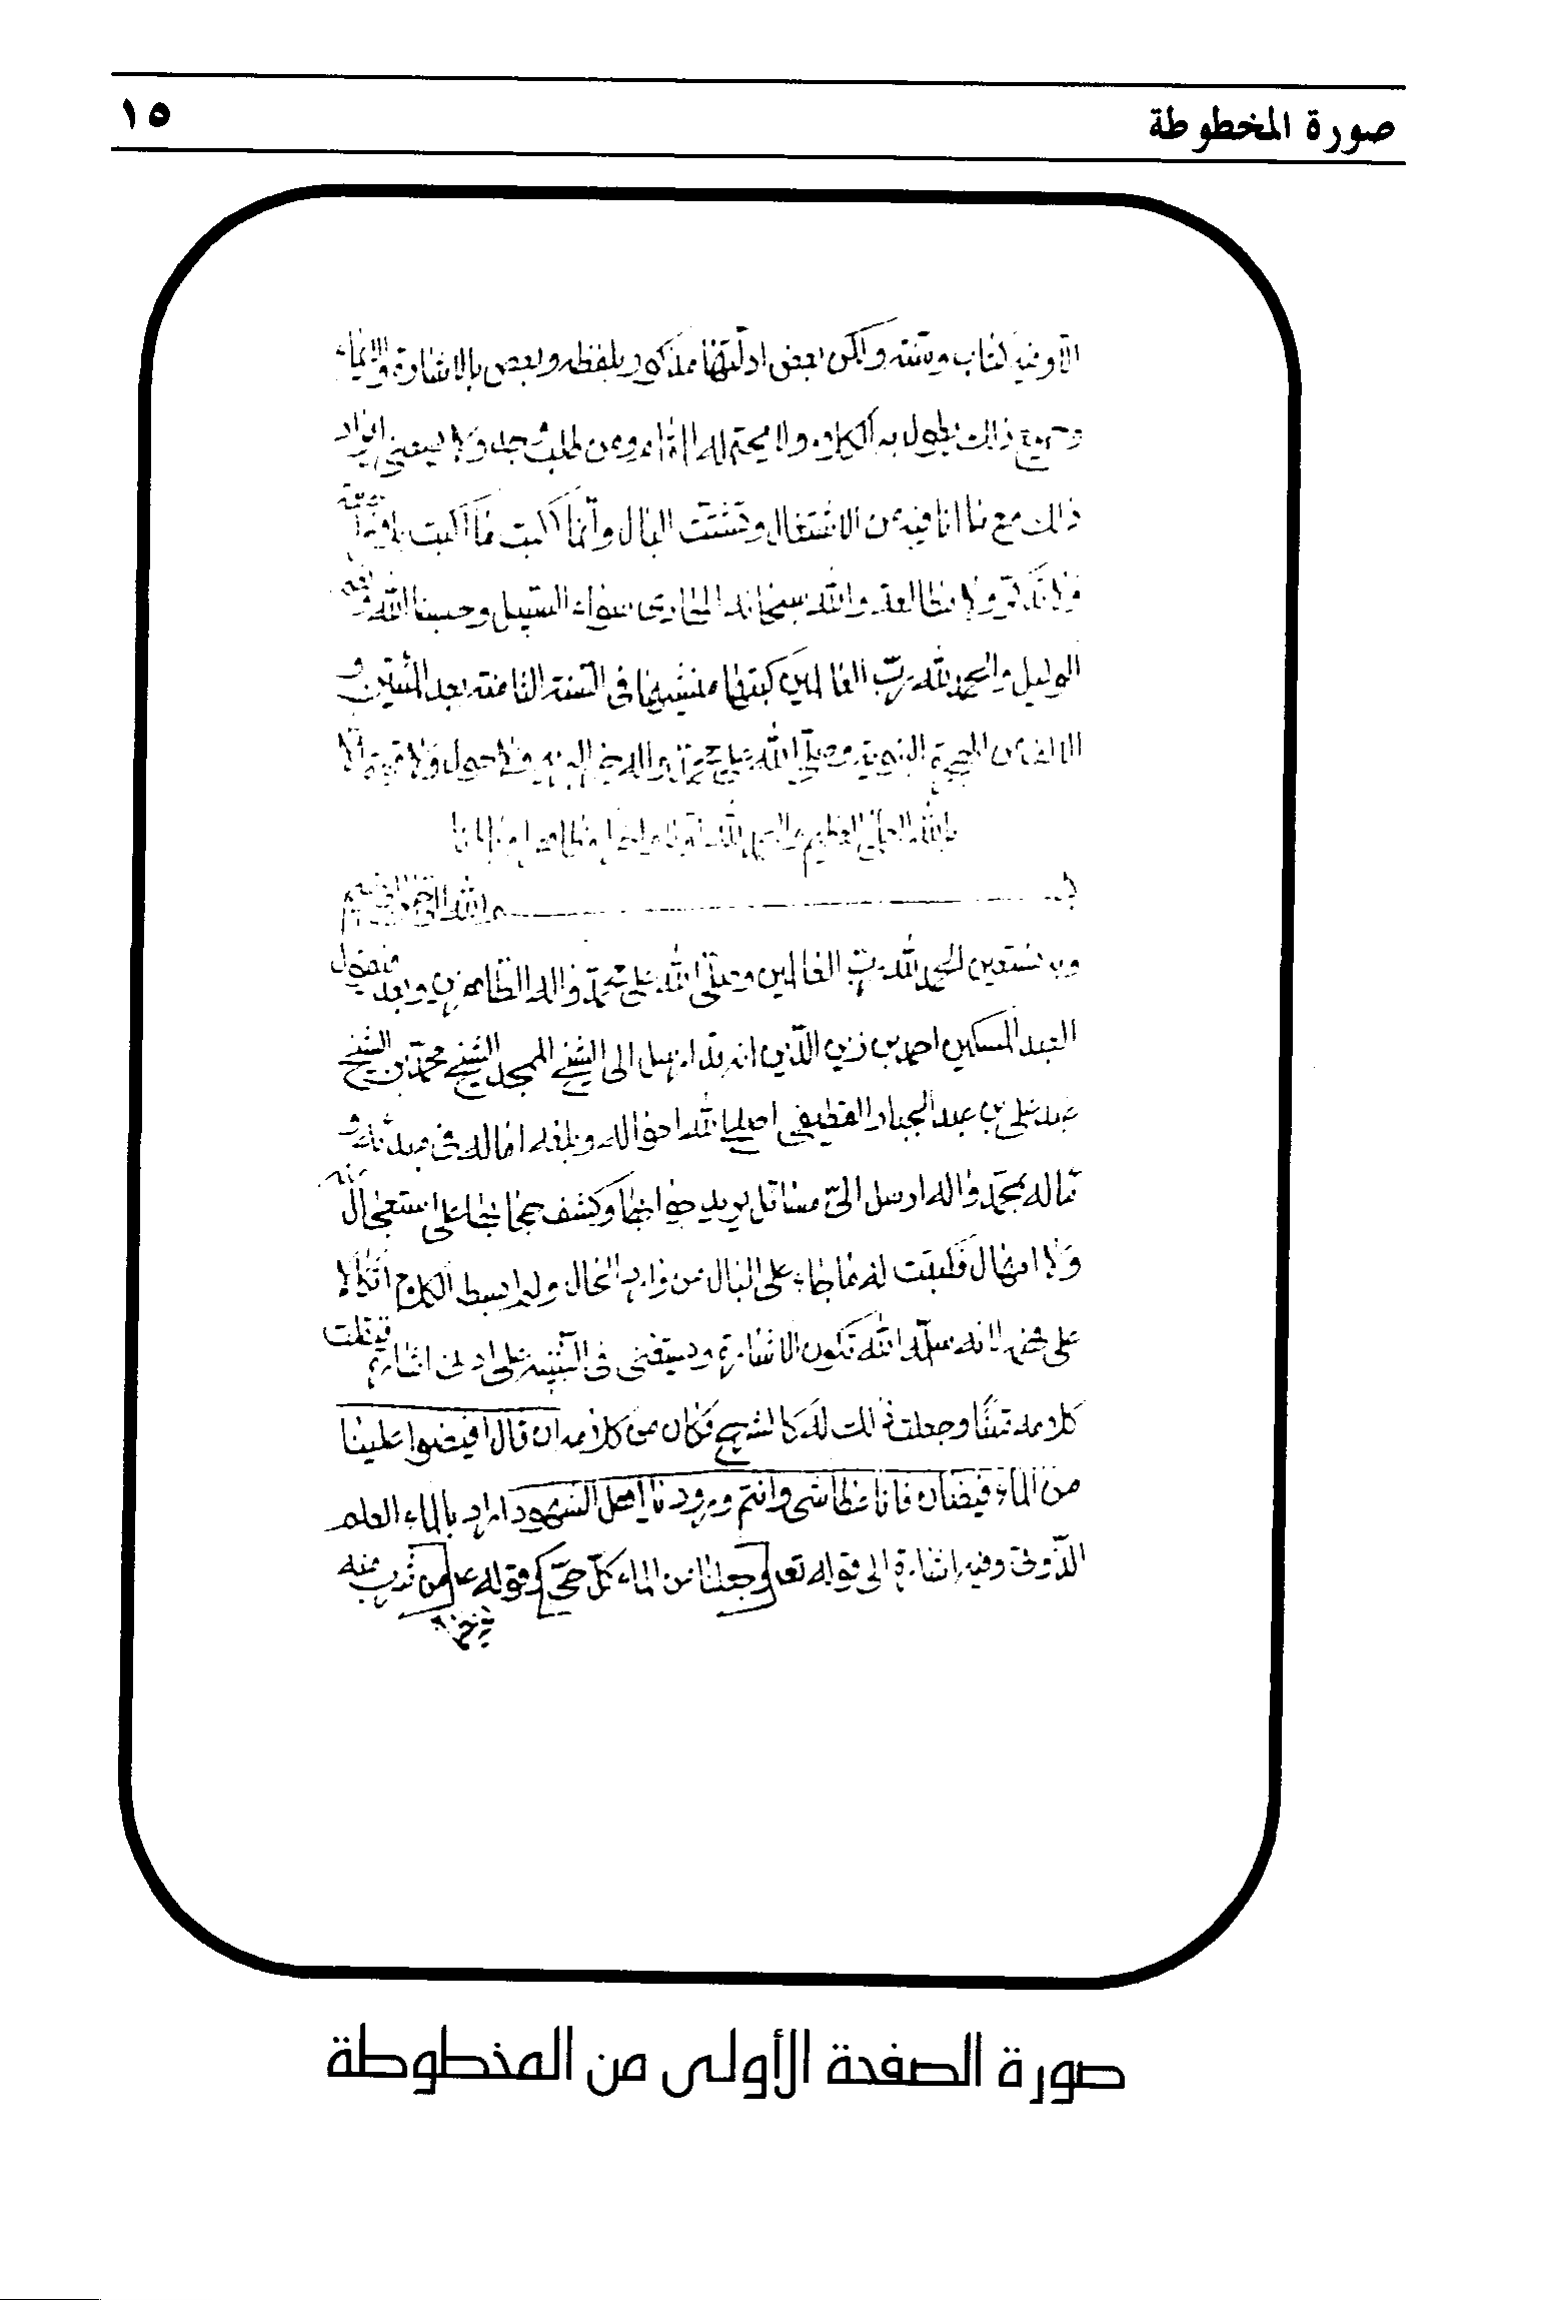 صورة المخطوطة
١٥
الا وفيه كتاب وسنة ولكن بعض ادلتها مذكور بلفظه وبعض بالاشارة والايماء
وجميع ذلك يطول به الكلام ولا يحتمله من طلب وجده ولا يسعني ايراد
ذلك مع ما انا فيه من الاشتغال وتشتت البال وانما كتبت ما كتبت
ولا مطالعة والله سبحانه الهادي سواء السبيل وحسبنا الله و
الوكيل والحمد لله رب العالمين كتبها منشيها في السنة الثامنة بعد المئتين و
الالف من الهجرة النبوية وصلى الله على محمد واله ولا حول ولا قوة الا
بالله العلي العظيم والحمد لله
بسم الله الرحمن الرحيم
وبه نستعين الحمد لله رب العالمين وصلى الله على محمد واله الطاهرين وبعد فيقول
العبد المسكين احمد بن زين الدين انه قد ارسل الي الشيخ الممجد الشيخ محمد بن الشيخ
عبد علي بن عبد الجبار القطيفي اصلح الله احواله وبلغه اماله في مبدئه و
ماله بمحمد واله ارسل الي مسائل يريد جوابها وكشف حجابها على استعجال
ولا امهال فكتبت له ما جاء على البال من وارد الحال ولم ابسط الكلام اتكالا
على فهمه لانه سلمه الله تكون الاشارة ويستغني في التنبيه على ادنى اشارة فجعلت
كلامه متنا وجعلت ذلك له كالشرح فكان من كلامه ان قال افيضوا علينا
من الماء فيضا فانا عطاشى وانتم ورود يا اهل الشهود اراد بالماء العلم
الذوقي وفيه اشارة الى قوله تعا وجعلنا من الماء كل شيء حي وقوله عا من شرب منه
صورة الصفحة الأولى من المخطوطة